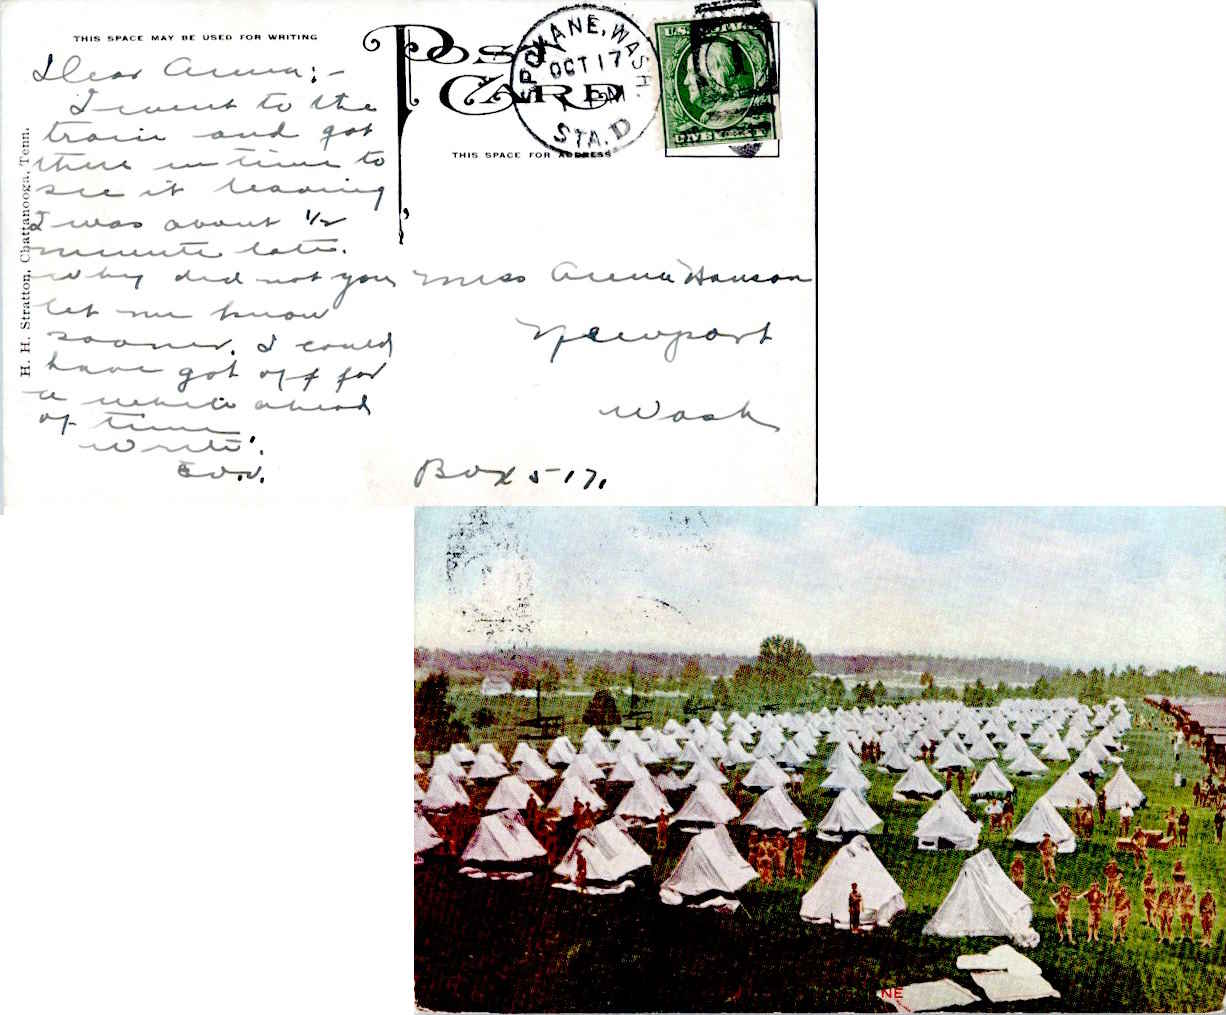 THIS SPACE MAY BE USED FOR WRITING
POST CARD
THIS SPACE FOR ADDRESS
SPOKANE, WASH.
OCT 17
M
STA. D
U.S. POSTAGE
1
ONE
H. H. Stratton, Chattanooga, Tenn.
Dear Anna:-
I went to the
train and got
there in time to
see it leaving
I was about 1/2
minute late.
why did not you
let me know
sooner. I could
have got off for
a while ahead
of time
Write.
Miss Anna Hanson
Newport
Wash
Box 517.
NE